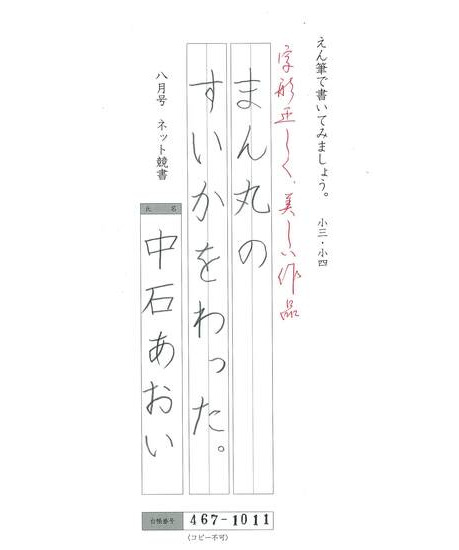 えん筆で書いてみましょう。 小三・小四
字形正しく、美しい作品
まん丸の
すいかをわった。
八月号 ネット競書
氏名
中石あおい
台帳番号 467-1011
(コピー不可)